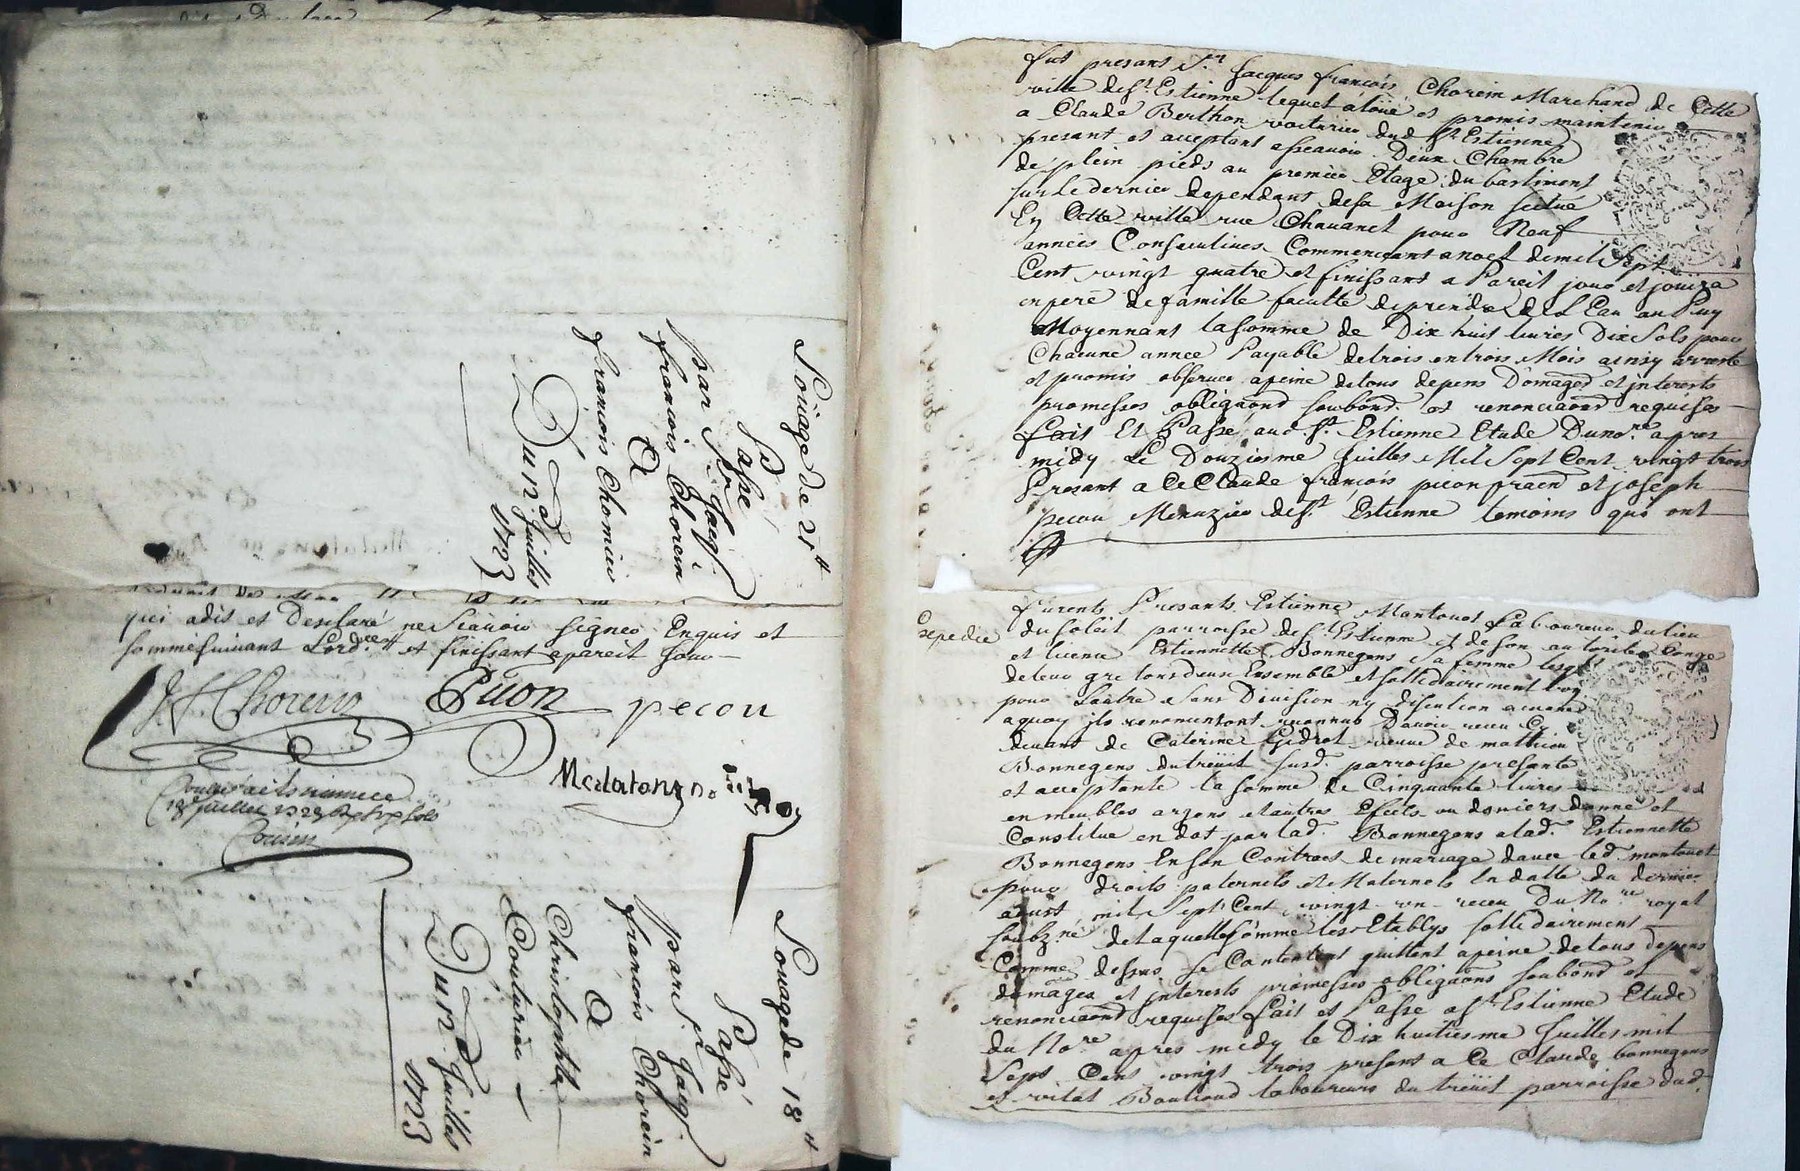 Loüage de 21 tt
Passé
par Sr Jacq.
françois Chorein
A
françois Chomier
Du d
12 Juillet
1723
qui a dit et Desclaré ne Scavoir signer Enquis et
sommé suivant Lordre et finissant a pareil Jour
JF Chorein Picon pecou
Controllé a St Estienne ce
18e juillet 1723
Cousin
Louage de 18 tt
Passé
par Sr Jacq.
françois Chorein
A
Christophle
Couturier
Du d
Juillet
1723
fut presant Sr Jacques françois Chorein Marchand de Cette
ville de St Estienne lequel a loüé et promis maintenir
a Claude Berthon voiturier dud St Estienne
presant et acceptant asscavoir Deux Chambre
de plein pieds au premier Etage du bastiment
sur le dernier dependant de sa Maison scitue
En Cette ville rue Chavanel pour Neuf
années Consecutives Commencant a noel de mil Sept
Cent vingt quatre et finissant a Pareil jour et jouira
en pere de famille faculté de prendre de L Eau au Puy
Moyennant la somme de Dix huit livres Dix Sols pour
Chacune année Payable de trois en trois Mois ainsy arresté
et promis observer a peine de tous depens Domages et interests
promesses obligaond soubond et renonciaond requises
fait Et Passé aud St Estienne Etude Du nore apres
midy Le Douziesme Juillet Mil Sept Cent vingt trois
Presant a Ce Claude françois picon et joseph
pecou Menuzier de St Estienne temoins qui ont
Expedié
furents Presants Estienne Montouet Laboureur du lieu
du soleil parroisse de St Estienne et de son autorité Conge
et licence Estiennette Bonnegens sa femme lesqls
de leur gre tous deux Ensemble et sollidairement l'un
pour Lautre Sans Division ny Discution
a quoy ils renoncent ont reconnus Davoir receu Cy
devant de Caterine Gidrol veuve de mathieu
Bonnegens du treüit susd. parroisse presante
et acceptante la somme de Cinquante livres
en meubles argent et autres Effets ou deniers donne et
Constitue en dot par lad. Bonnegens a lad. Estiennette
Bonnegens En son Contract de mariage avec led. montouet
pour droits paternels et Maternels En datte du dernier
aoust mil Sept Cent vingt un receu Du Nore royal
soubz.né de laquelle somme les Etablys sollidairement
Comme dessus se Contentent quittent a peine de tous depens
domages et interests promesses obligaons soubond et
renonciaond requises fait et Passé a St Estienne Etude
du Nore apres midy le Dix huitiesme Juillet mil
Sept Cent vingt trois presant a Ce Claude bonnegens
et vital Boulioud laboureurs du treüit parroisse dud.